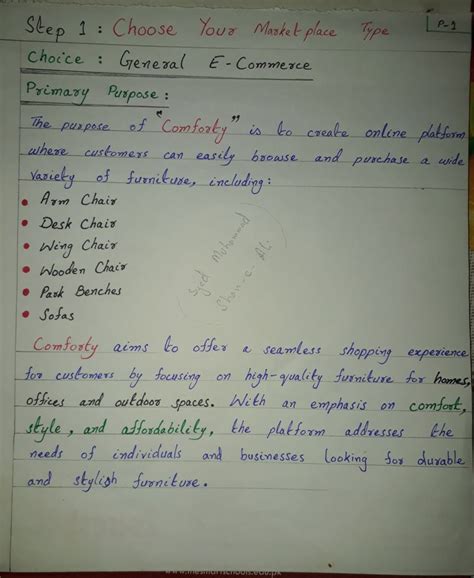 P-1
Step 1 : Choose Your Market place Type
Choice : General E-Commerce
Primary Purpose :
The purpose of "Comforty" is to create online platform
where customers can easily browse and purchase a wide
variety of furniture, including:
• Arm Chair
• Desk Chair
• Wing Chair
• Wooden Chair
• Park Benches
• Sofas
Syed Mohammad
Shan-e-Ali
Comforty aims to offer a seamless shopping experience
for customers by focusing on high-quality furniture for homes,
offices and outdoor spaces. With an emphasis on comfort,
style, and affordability, the platform addresses the
needs of individuals and businesses looking for durable
and stylish furniture.